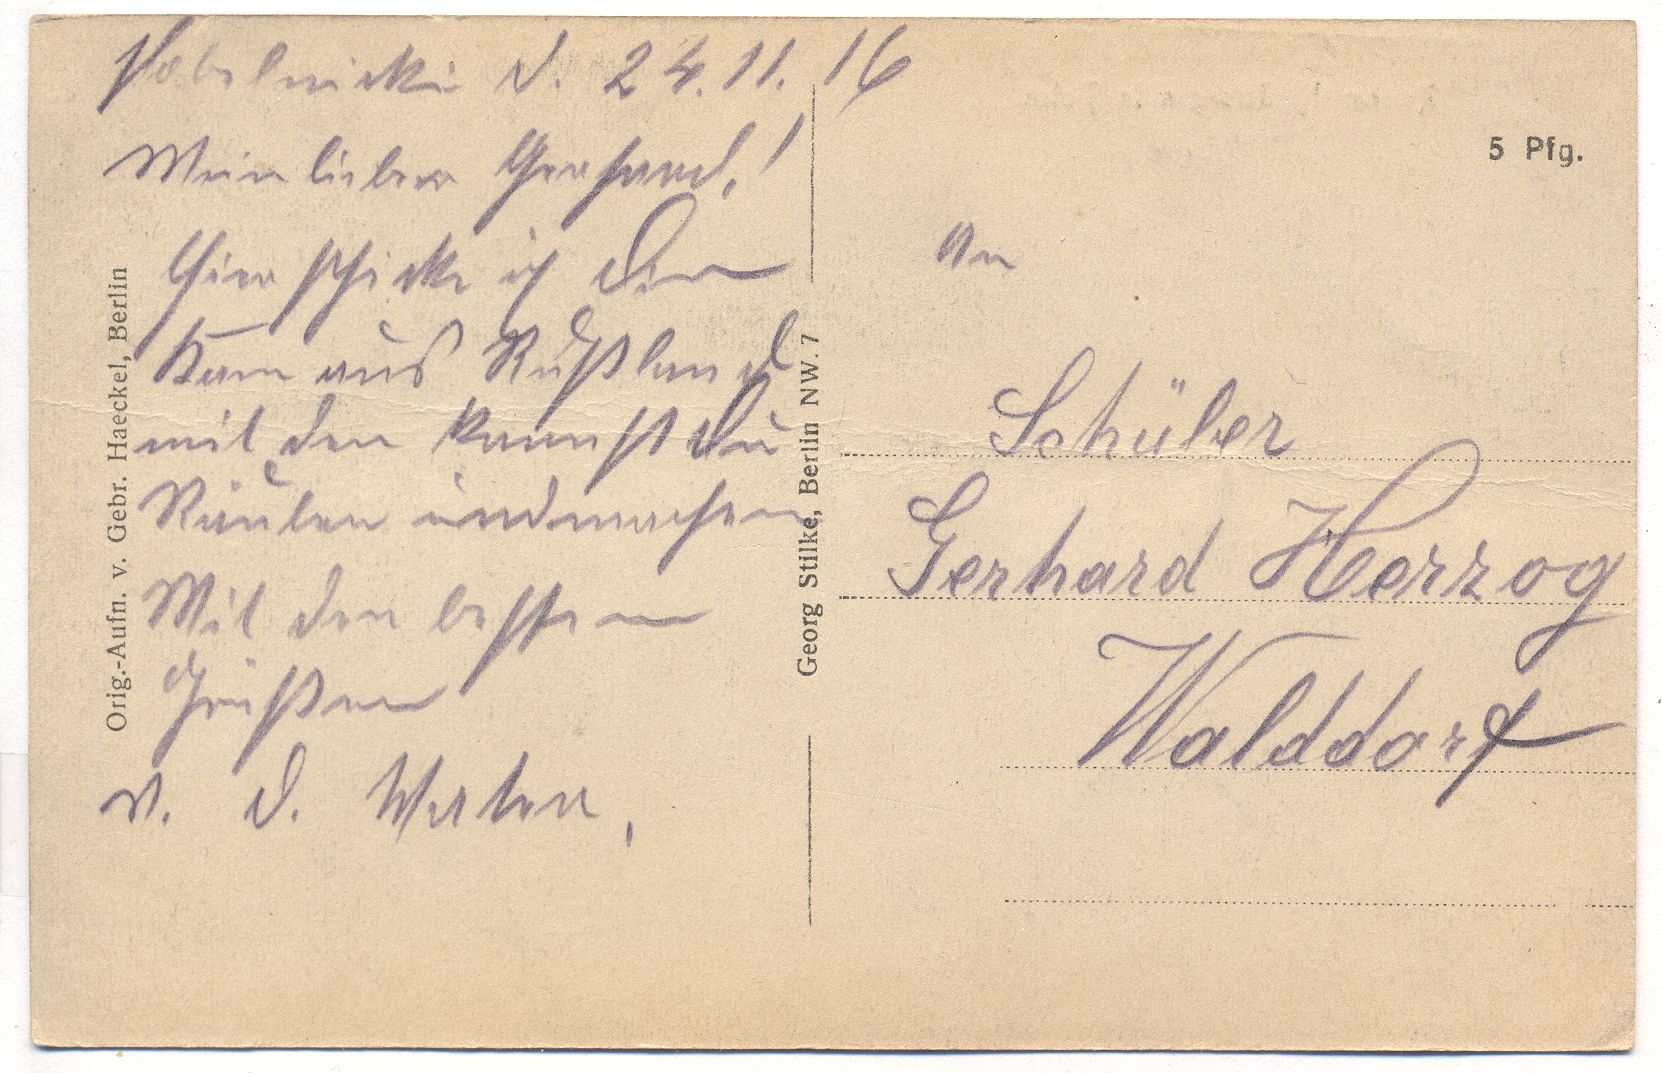 d. 24.11.16
Mein lieber Gerhard!
Hier schicke ich den
Kam aus Rußland
mit den kannst Du
und machen
Mit den besten
Grüßen
v. d.
Orig.-Aufn. v. Gebr. Haeckel, Berlin
Georg Stilke, Berlin NW. 7
5 Pfg.
An
Schüler
Gerhard Herzog
Walddorf